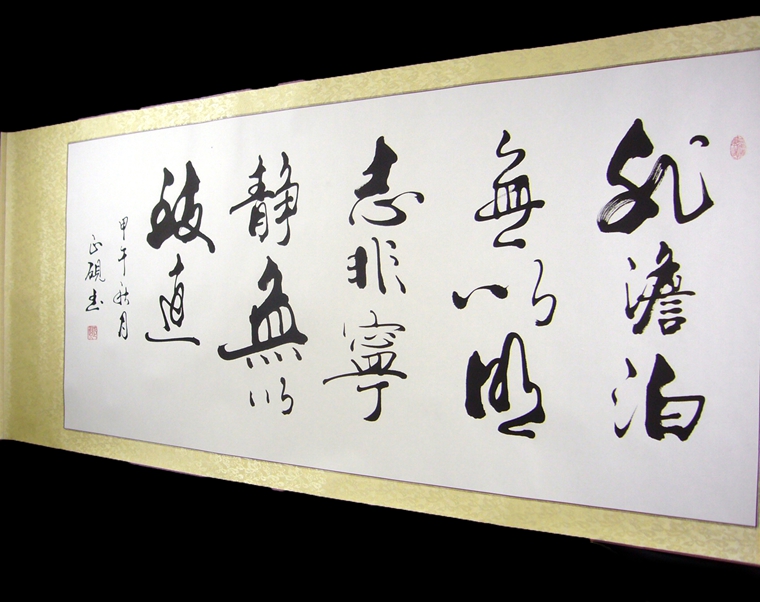 非澹泊
無以明
志非寧
靜無以
致遠
甲午秋月
正硯书